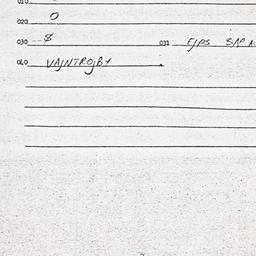 010
020 0
030 8 031 FJPS SAP
040 VAJNTROJB1